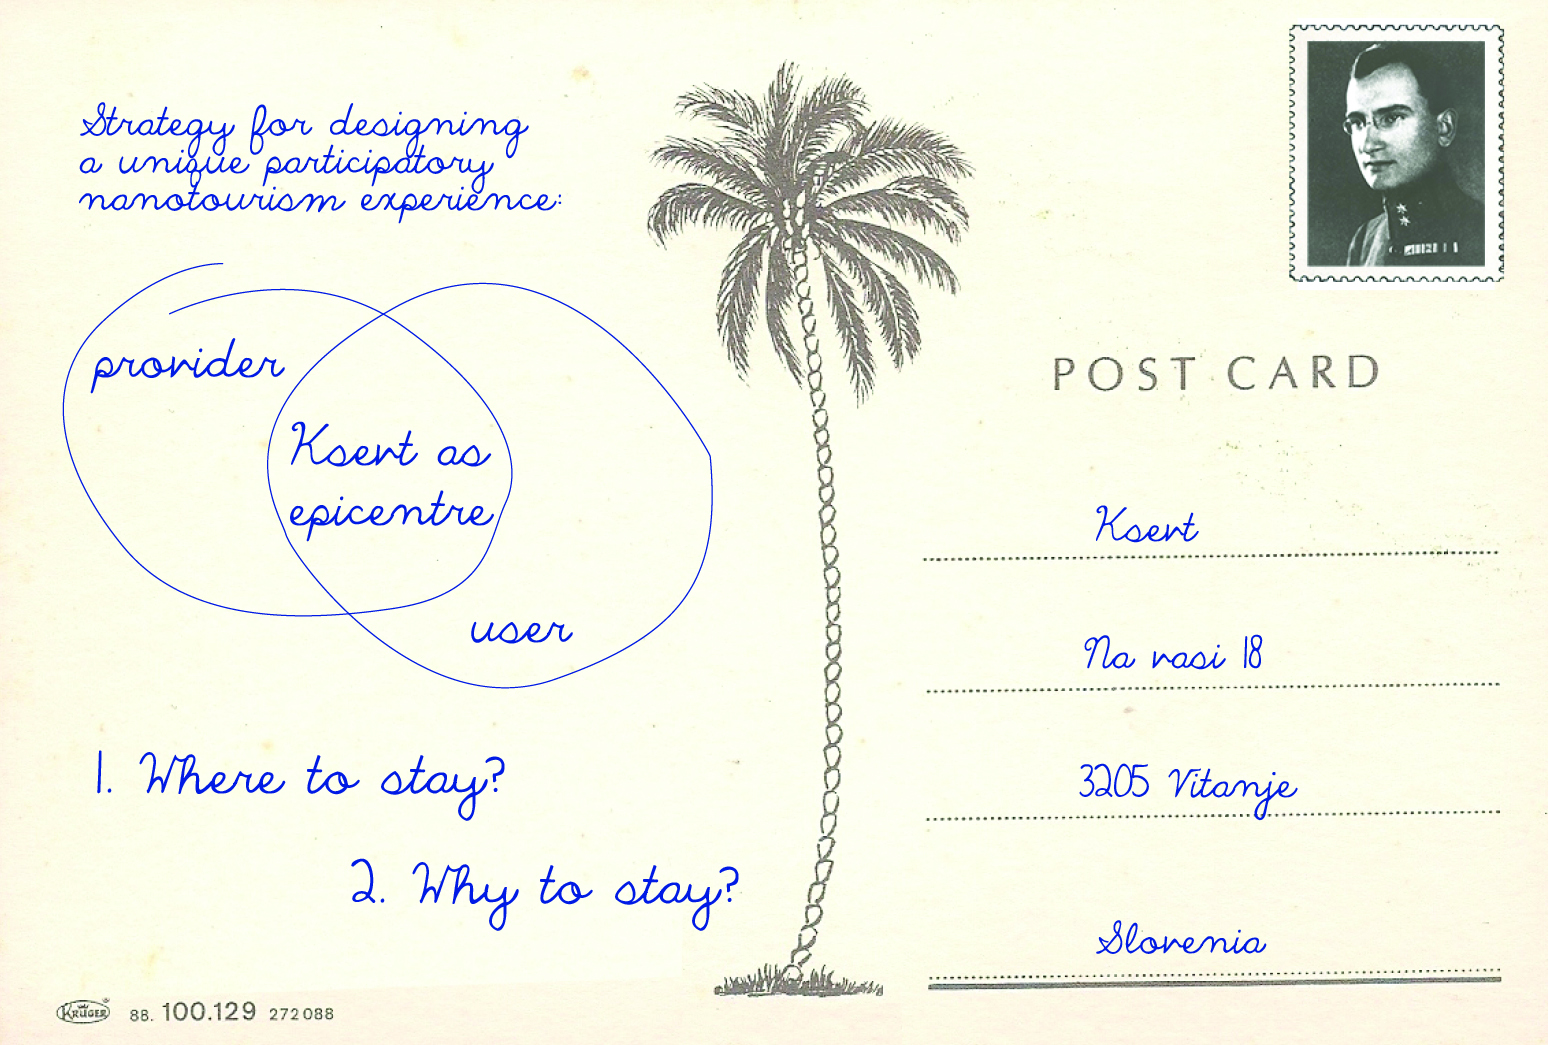 Strategy for designing
a unique participatory
nanotourism experience:
provider
Ksevt as
epicentre
user
1. Where to stay?
2. Why to stay?
KRÜGER
88. 100.129 272088
POST CARD
Ksevt
Na vasi 18
3205 Vitanje
Slovenia